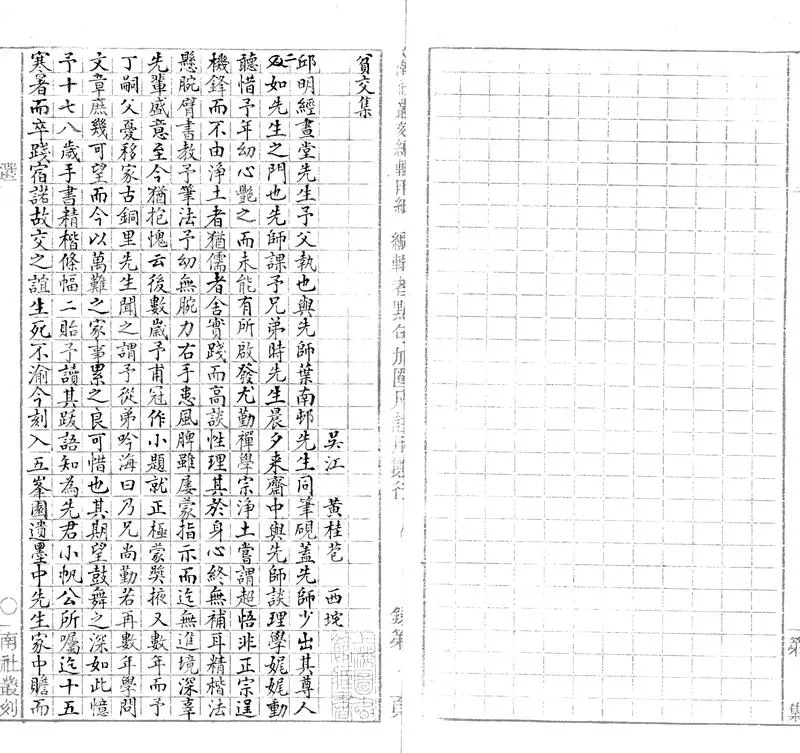 貧交集
吳江　黃桂芬　西垞
邱明經晝堂先生予父執也與先師葉南邨先生同筆硯蓋先師少出其尊人
二如先生之門也先師課予兄弟時先生晨夕来齋中與先師談理學娓娓動
聽惜予年幼心艷之而未能有所啟發尤勤禪學宗淨土嘗謂超悟非正宗逞
機鋒而不由淨土者猶儒者舍實踐而高談性理其於身心終無補耳精楷法
懸腕臂書教予筆法予幼無腕力右手患風脾雖屡蒙指示而迄無進境深辜
先輩盛意至今猶抱愧云後數歲予甫冠作小題就正極蒙奬掖又數年而予
丁嗣父憂移家古銅里先生聞之謂予從弟吟海曰乃兄尚勤若再數年學問
文章庶幾可望而今以萬難之家事累之良可惜也其期望鼓舞之深如此憶
予十七八歲手書精楷條幅二貽予讀其跋語知為先君小帆公所囑迄十五
寒暑而卒踐宿諾故交之誼生死不渝今刻入五峯園遺墨中先生家中贍而
選
南社叢刻
編輯者點句加圈
頁
第
集